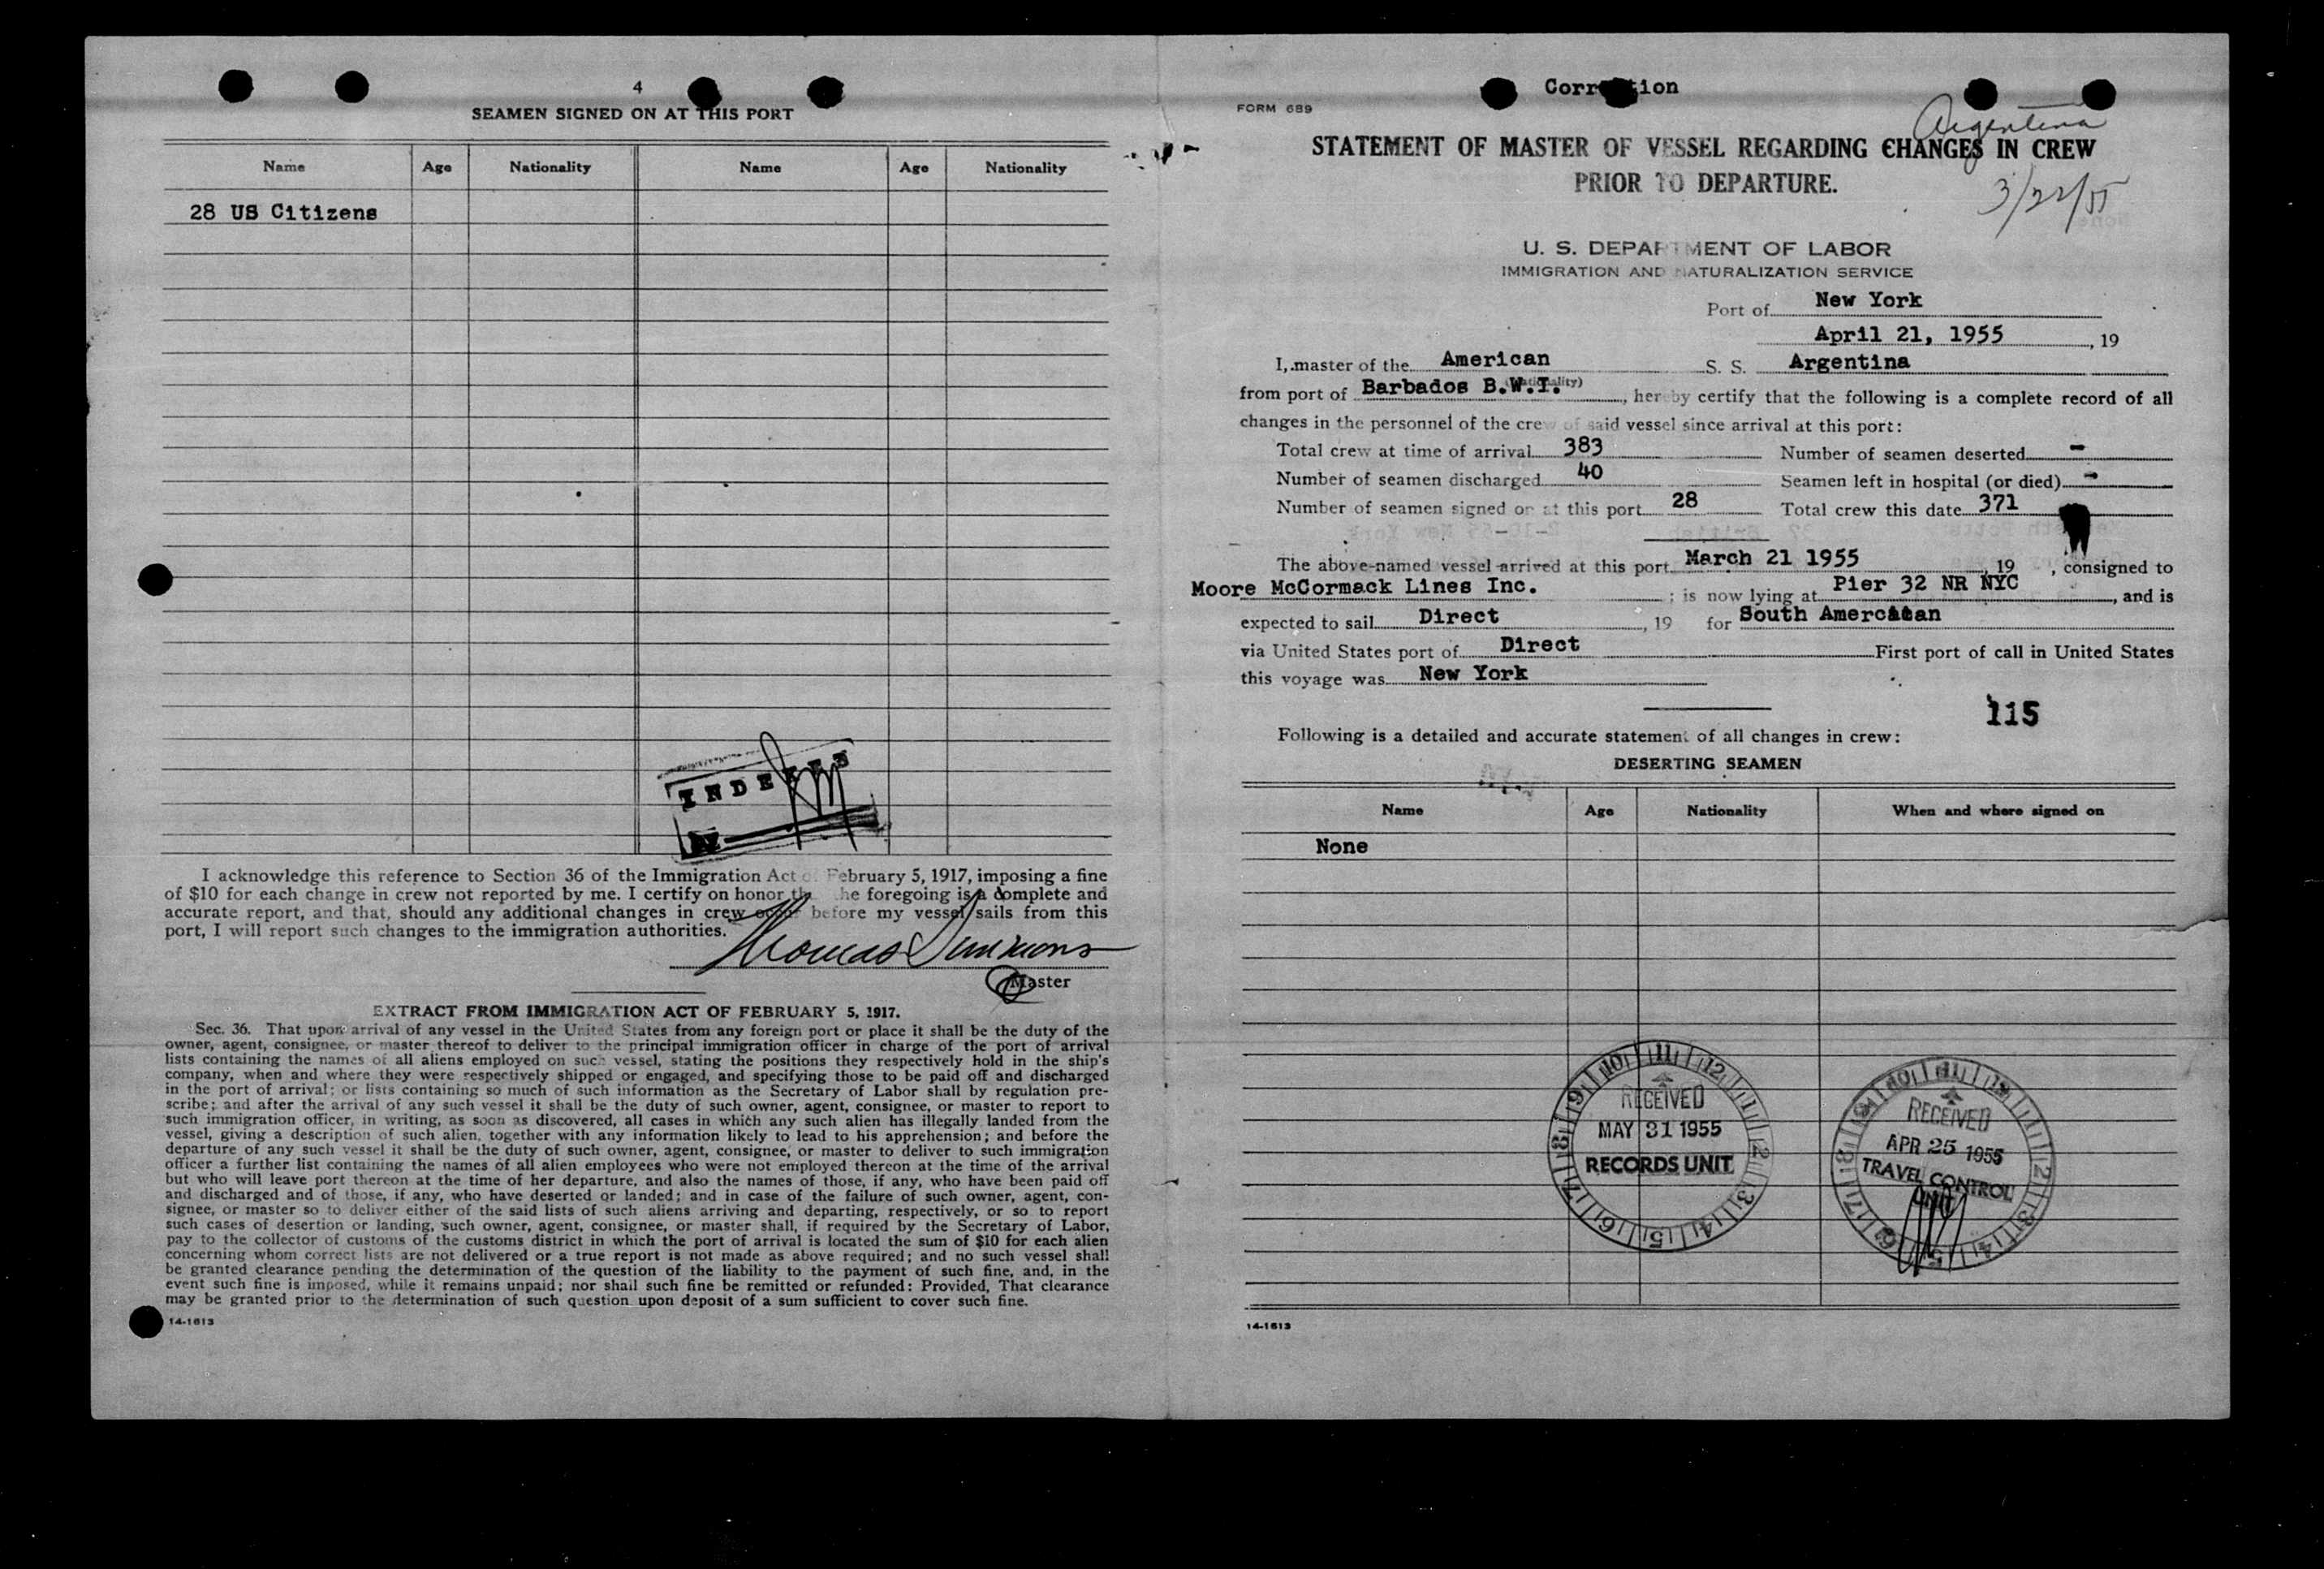 4
SEAMEN SIGNED ON AT THIS PORT
Name Age Nationality Name Age Nationality
28 US Citizens
INDEXED
I acknowledge this reference to Section 36 of the Immigration Act of February 5, 1917, imposing a fine
of $10 for each change in crew not reported by me. I certify on honor the foregoing is a complete and
accurate report, and that, should any additional changes in crew occur before my vessel sails from this
port, I will report such changes to the immigration authorities.
Thomas Simmons
Master
EXTRACT FROM IMMIGRATION ACT OF FEBRUARY 5, 1917.
Sec. 36. That upon arrival of any vessel in the United States from any foreign port or place it shall be the duty of the
owner, agent, consignee, or master thereof to deliver to the principal immigration officer in charge of the port of arrival
lists containing the names of all aliens employed on such vessel, stating the positions they respectively hold in the ship's
company, when and where they were respectively shipped or engaged, and specifying those to be paid off and discharged
in the port of arrival; or lists containing so much of such information as the Secretary of Labor shall by regulation pre-
scribe; and after the arrival of any such vessel it shall be the duty of such owner, agent, consignee, or master to report to
such immigration officer, in writing, as soon as discovered, all cases in which any such alien has illegally landed from the
vessel, giving a description of such alien, together with any information likely to lead to his apprehension; and before the
departure of any such vessel it shall be the duty of such owner, agent, consignee, or master to deliver to such immigration
officer a further list containing the names of all alien employees who were not employed thereon at the time of the arrival
but who will leave port thereon at the time of her departure, and also the names of those, if any, who have been paid off
and discharged and of those, if any, who have deserted or landed; and in case of the failure of such owner, agent, con-
signee, or master so to deliver either of the said lists of such aliens arriving and departing, respectively, or so to report
such cases of desertion or landing, such owner, agent, consignee, or master shall, if required by the Secretary of Labor,
pay to the collector of customs of the customs district in which the port of arrival is located the sum of $10 for each alien
concerning whom correct lists are not delivered or a true report is not made as above required; and no such vessel shall
be granted clearance pending the determination of the question of the liability to the payment of such fine, and, in the
event such fine is imposed, while it remains unpaid; nor shall such fine be remitted or refunded: Provided, That clearance
may be granted prior to the determination of such question upon deposit of a sum sufficient to cover such fine.
14-1613
Correction
FORM 689
Argentina
STATEMENT OF MASTER OF VESSEL REGARDING CHANGES IN CREW
PRIOR TO DEPARTURE.
3/22/55
U. S. DEPARTMENT OF LABOR
IMMIGRATION AND NATURALIZATION SERVICE
Port of New York
April 21, 1955, 19
I, master of the American S. S. Argentina
(Nationality)
from port of Barbados B.W.I., hereby certify that the following is a complete record of all
changes in the personnel of the crew of said vessel since arrival at this port:
Total crew at time of arrival 383 Number of seamen deserted -
Number of seamen discharged 40 Seamen left in hospital (or died) -
Number of seamen signed on at this port 28 Total crew this date 371
The above-named vessel arrived at this port March 21 1955, 19 , consigned to
Moore McCormack Lines Inc. ; is now lying at Pier 32 NR NYC, and is
expected to sail Direct, 19 for South
via United States port of Direct First port of call in United States
this voyage was New York
115
Following is a detailed and accurate statement of all changes in crew:
DESERTING SEAMEN
Name Age Nationality When and where signed on
None
RECEIVED
MAY 31 1955
RECORDS UNIT
RECEIVED
APR 25 1955
TRAVEL CONTROL
UNIT
14-1613